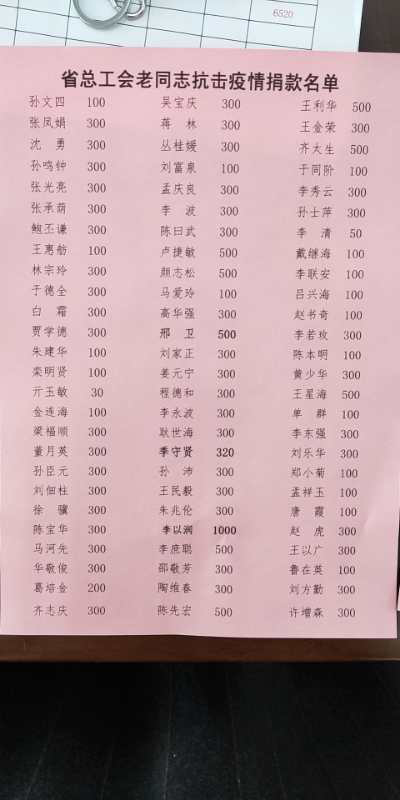 6520
省总工会老同志抗击疫情捐款名单
孙文四 100 吴宝庆 300 王利华 500
张凤娟 300 蒋林 300 王金荣 300
沈勇 300 丛桂媛 300 齐大生 500
孙鸣钟 300 刘富泉 100 于同阶 100
张光亮 300 孟庆良 300 李秀云 300
张承荫 300 李波 300 孙士萍 300
鲍丕谦 300 陈曰武 300 李清 50
王惠舫 100 卢捷敏 500 戴继海 100
林宗玲 300 颜志松 500 李联安 100
于德全 300 马爱玲 100 吕兴海 100
白霜 300 高华强 300 赵书奇 100
贾学德 300 邢卫 500 李若玫 300
朱建华 100 刘家正 300 陈本明 100
栾明贤 100 姜元宁 300 黄少华 300
亓玉敏 30 程德和 300 王星海 500
金连海 100 李永波 300 单群 100
梁福顺 300 耿世海 300 李东强 300
董月英 300 季守贤 320 刘乐华 300
孙臣元 300 孙沛 300 郑小菊 100
刘佃柱 300 王民毅 300 孟祥玉 100
徐骥 300 朱兆伦 300 唐霞 100
陈宝华 300 李以润 1000 赵虎 300
马河先 300 李庶聪 500 王以广 300
华敬俊 300 邵敬芳 300 鲁在英 100
葛培金 200 陶维春 300 刘方勤 300
齐志庆 300 陈先宏 500 许增森 300